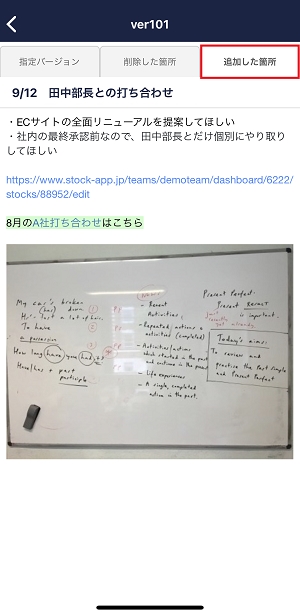 ver101
指定バージョン
削除した箇所
追加した箇所
9/12 田中部長との打ち合わせ
・ECサイトの全面リニューアルを提案してほしい
・社内の最終承認前なので、田中部長とだけ個別にやり取り
してほしい
https://www.stock-app.jp/teams/demoteam/dashboard/6222/
stocks/88952/edit
8月のA社打ち合わせはこちら
My car's broken
down
To have
a possession
How long have you had it?
Have/has + past
participle
- Recent
Activities
- Repeated actions
activities (completed)
- Activities/actions
which started in the past
and continue in the present
- Life experiences
- A single, completed
action in the past.
Present Perfect
Present
is important.
Today's aims:
To review and
practice the Past Simple
and Present Perfect